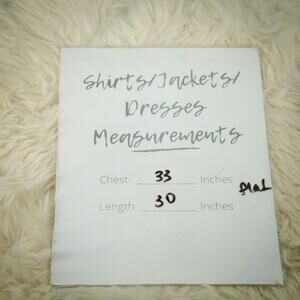 Shirts/Jackets/
Dresses
Measurements
Chest- 33 Inches
Length- 30 Inches